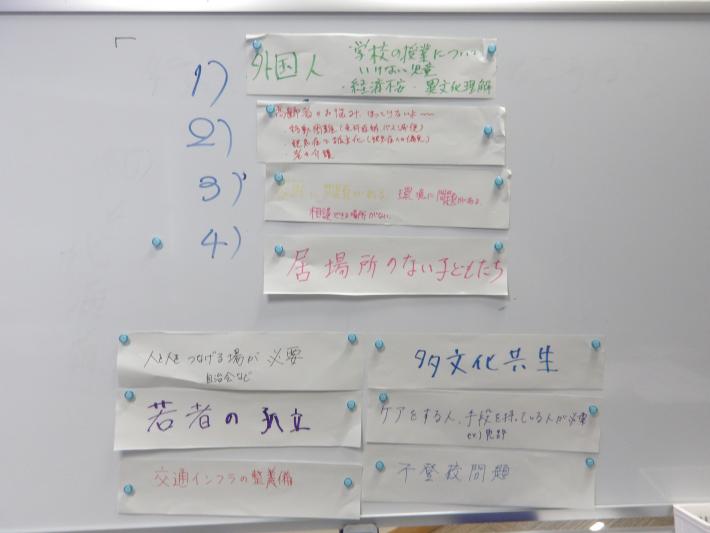 1)
外国人
学校の授業について
いけない児童
・経済不安・異文化理解
2)
高齢者のお悩み、ほっとけないよ〜
・移動困難(免許返納、バス減便)
・認知症
・老々介護
3)
問題がある 環境に問題がある
相談できる場所がない
4)
居場所のない子どもたち
人と人をつなげる場が必要
自治会など
若者の孤立
交通インフラの整備
多文化共生
ケアをする人、手段を持っている人が必要
不登校問題